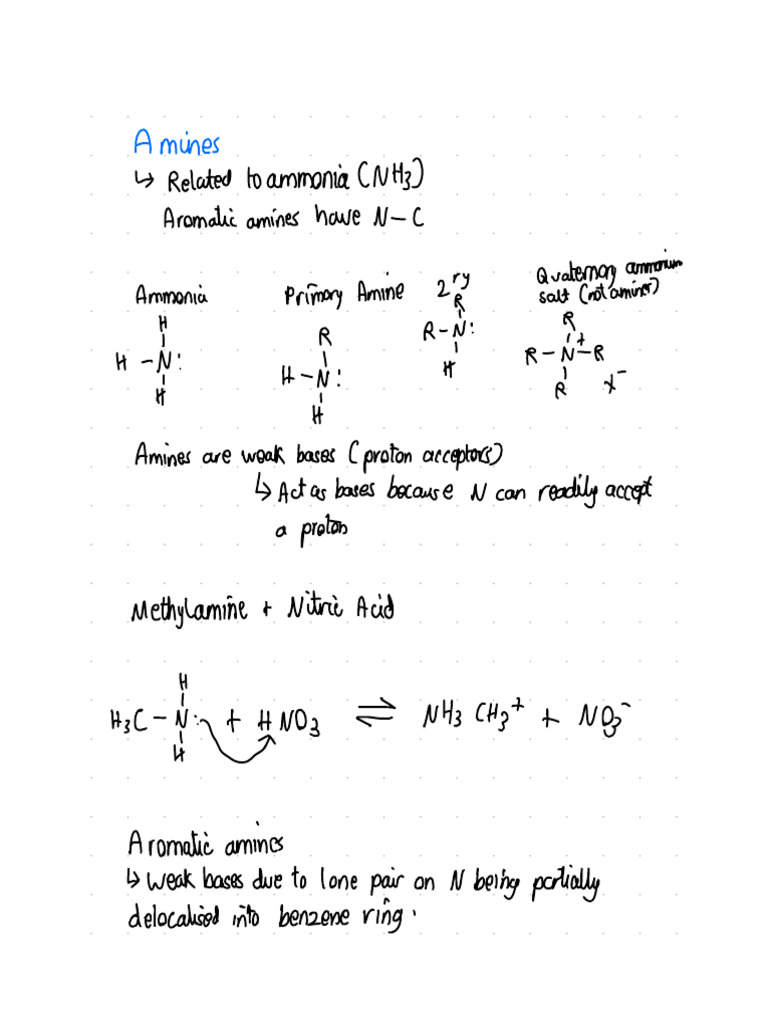 Amines
↳ Related to ammonia (NH3)
Aromatic amines have N–C
Ammonia
H
H – N :
H
Primary Amine
R
H – N :
H
2ry
R
R – N :
H
Quaternary ammonium
salt (not amines)
R
R – N+ – R
R
X-
Amines are weak bases (proton acceptors)
↳ Act as bases because N can readily accept
a proton
Methylamine + Nitric Acid
H
H3C – N : + HNO3 ⇌ NH3 CH3+ + NO3-
H
Aromatic amines
↳ weak bases due to lone pair on N being partially
delocalised into benzene ring.